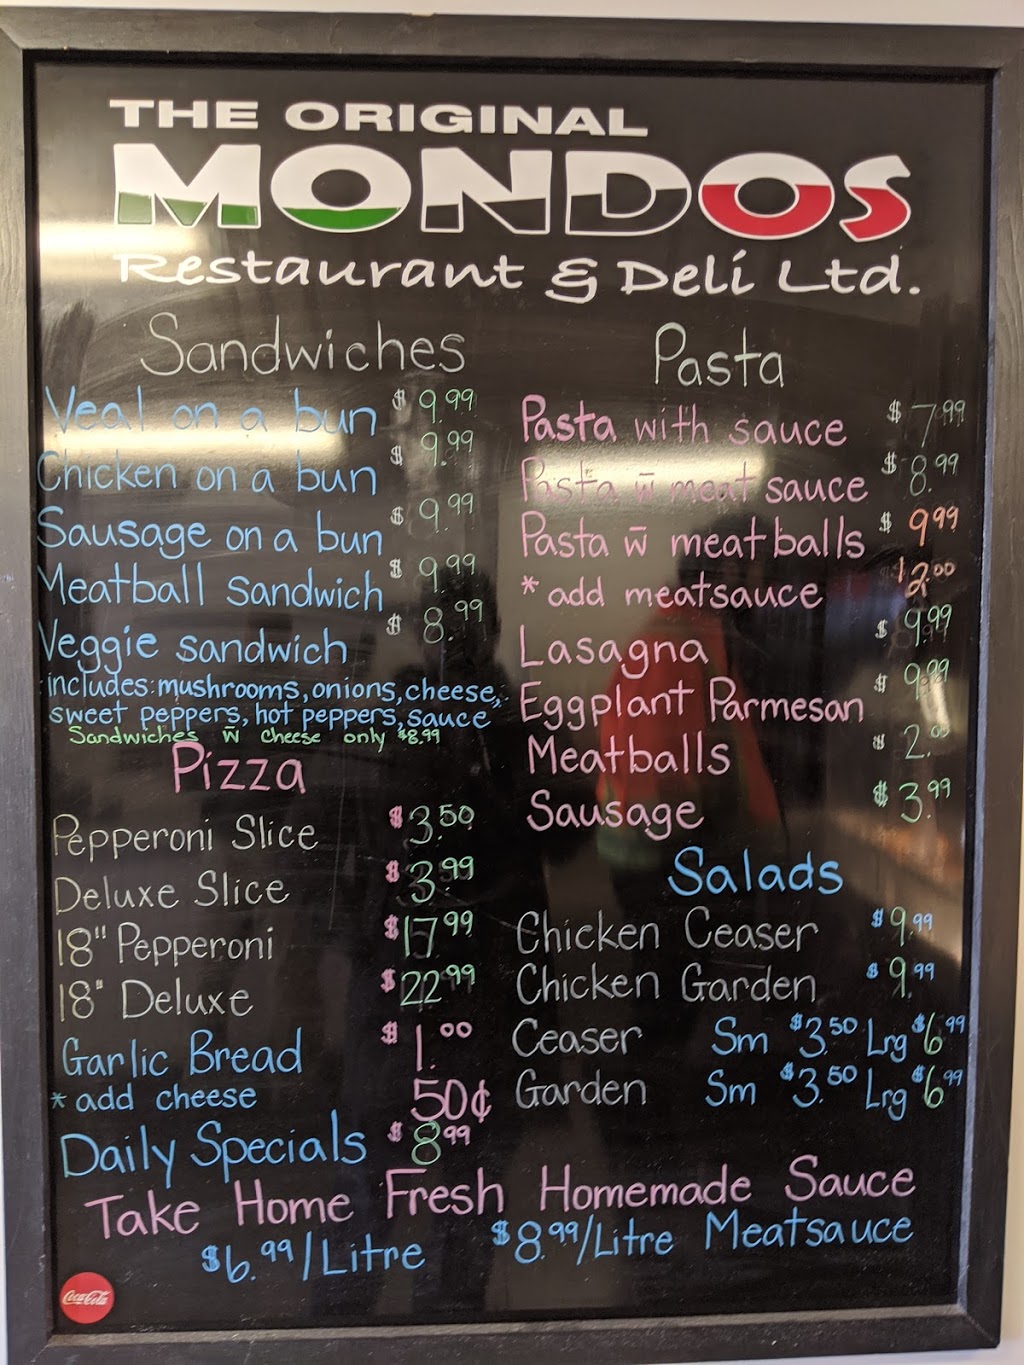 THE ORIGINAL
MONDOS
Restaurant & Deli Ltd.
Sandwiches
Veal on a bun $9.99
Chicken on a bun $9.99
Sausage on a bun $9.99
Meatball Sandwich $9.99
Veggie sandwich $8.99
includes: mushrooms, onions, cheese,
sweet peppers, hot peppers, sauce
Sandwiches w̄ cheese only $8.99
Pizza
Pepperoni Slice $3.50
Deluxe Slice $3.99
18" Pepperoni $17.99
18" Deluxe $22.99
Garlic Bread $1.00
* add cheese 50¢
Daily Specials $8.99
Pasta
Pasta with sauce $7.99
Pasta w̄ meat sauce $8.99
Pasta w̄ meatballs $9.99
* add meatsauce $2.00
Lasagna $9.99
Eggplant Parmesan $9.99
Meatballs $2.00
Sausage $3.99
Salads
Chicken Ceaser $9.99
Chicken Garden $9.99
Ceaser Sm $3.50 Lrg $6.99
Garden Sm $3.50 Lrg $6.99
Take Home Fresh Homemade Sauce
$6.99/Litre $8.99/Litre Meatsauce
Coca-Cola